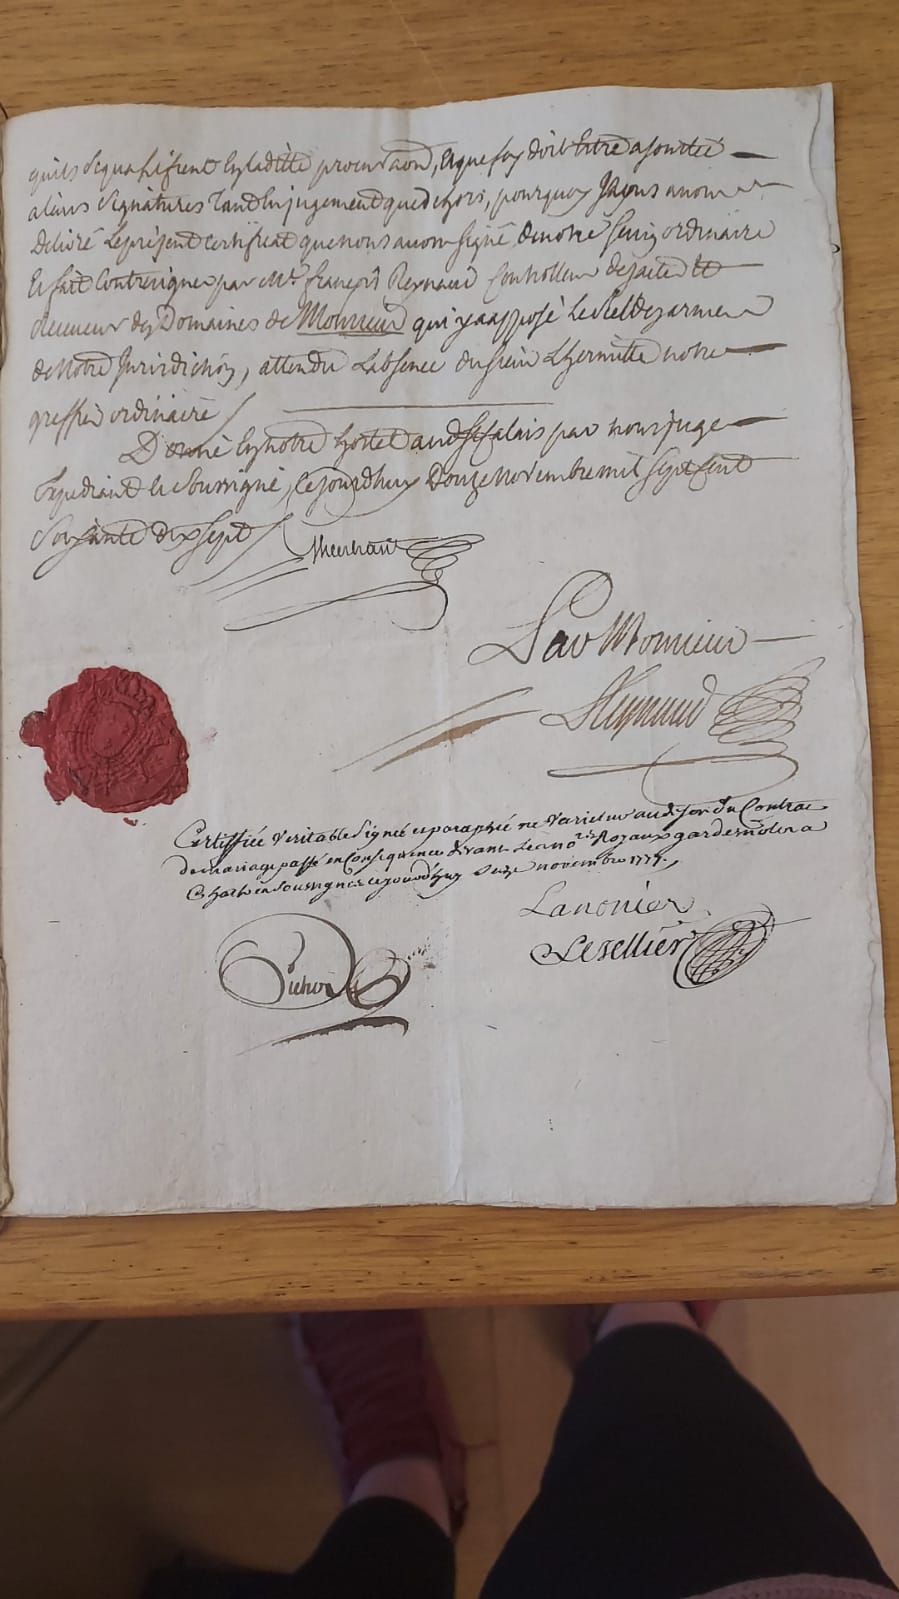 qu'ils se qualifient En laditte procuraōn, Et que foy doit Estre ajoutée
a leurs signatures Tant En jugement que dehors, pourquoy Nous avons
Delivré Le present certificat que nous avons signé de notre seing ordinaire
Et fait Contresigner par Mr. françois Reynaud Controlleur des aites Et
Receveur des Domaines de Monsieur qui y a apposé Le Scel des armes
de Notre Jurisdiction, attendu L'absence du sieur L'hermitte notre
greffier ordinaire
Donné En notre hostel aud. St Calais par nous juge
Expediant Et Soussigné, Ce jourd'huy Douze novembre mil sept Cent
Soixante dix sept
Par Monsieur
Reynaud
Certiffiée Veritable Signée et paraphée ne Varietur au desir du Contrat
de mariage passé en Consequence devant Les no.res Royaux gardenottes a
soussignés ce jourd'huy Seize novembre 1777.
Lanonier
Leselliér